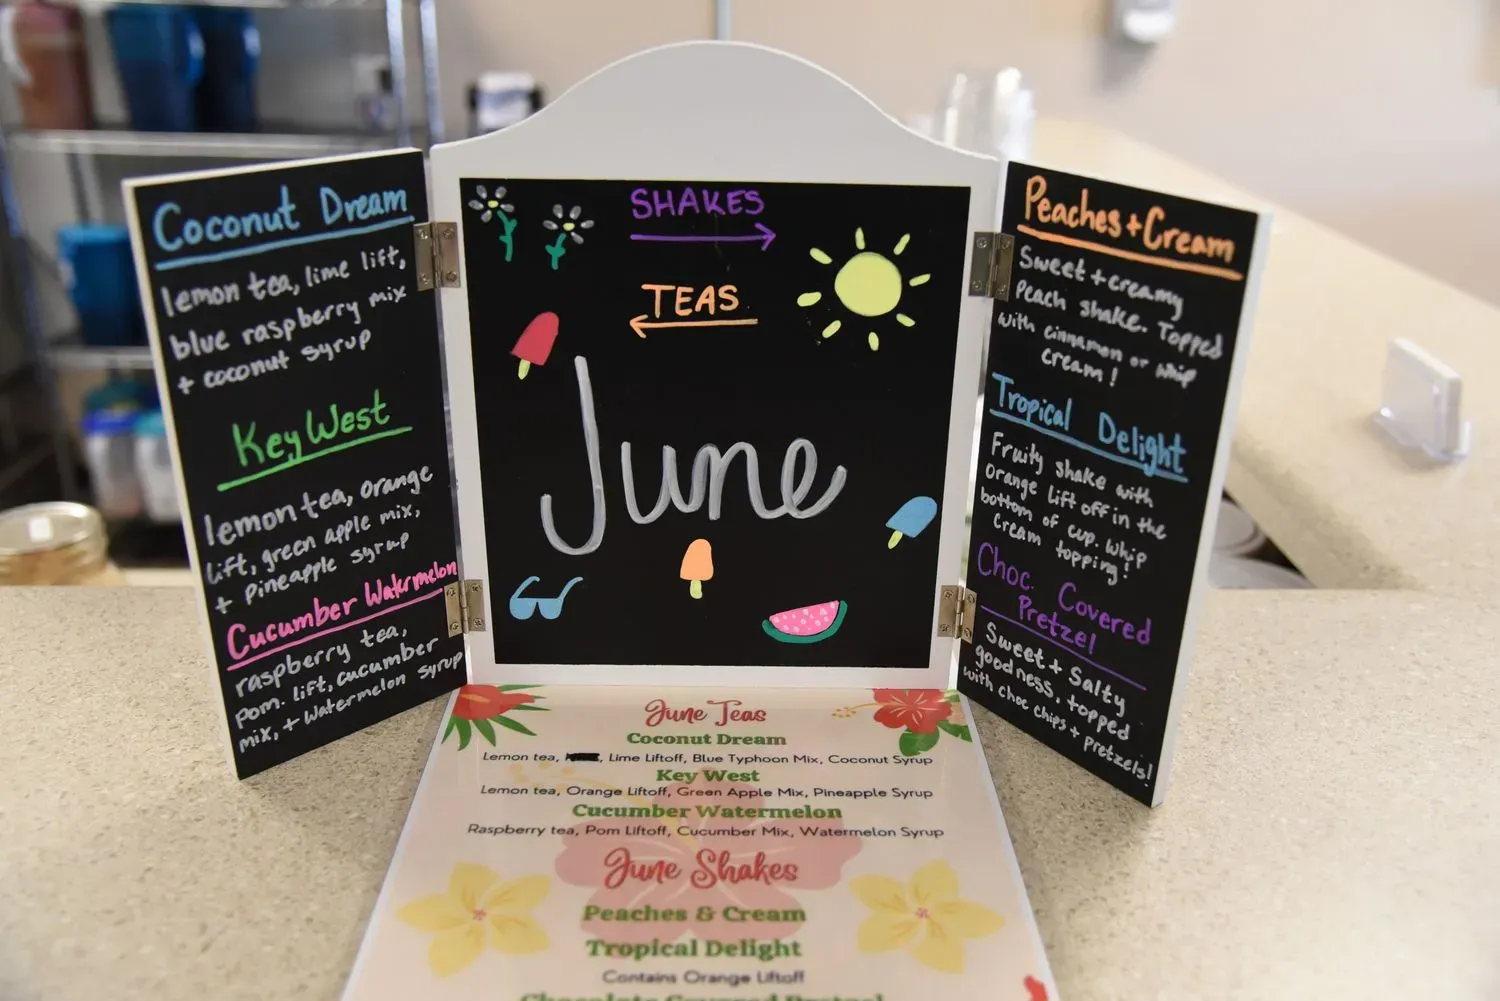 Coconut Dream
lemon tea, lime lift,
blue raspberry mix
+ coconut syrup
Key West
lemon tea, orange
lift, green apple mix,
+ pineapple syrup
Cucumber Watermelon
raspberry tea,
pom. lift, cucumber
mix, + watermelon syrup
SHAKES
TEAS
June
Peaches + Cream
Sweet + creamy
Peach shake. Topped
with cinnamon or whip
cream!
Tropical Delight
Fruity shake with
orange lift off in the
bottom of cup. Whip
cream topping!
Choc. Covered
Pretzel
Sweet + Salty
goodness, topped
with choc chips + pretzels!
June Teas
Coconut Dream
Lemon tea, , Lime Liftoff, Blue Typhoon Mix, Coconut Syrup
Key West
Lemon tea, Orange Liftoff, Green Apple Mix, Pineapple Syrup
Cucumber Watermelon
Raspberry tea, Pom Liftoff, Cucumber Mix, Watermelon Syrup
June Shakes
Peaches & Cream
Tropical Delight
Contains Orange Liftoff
Chocolate Covered Pretzel